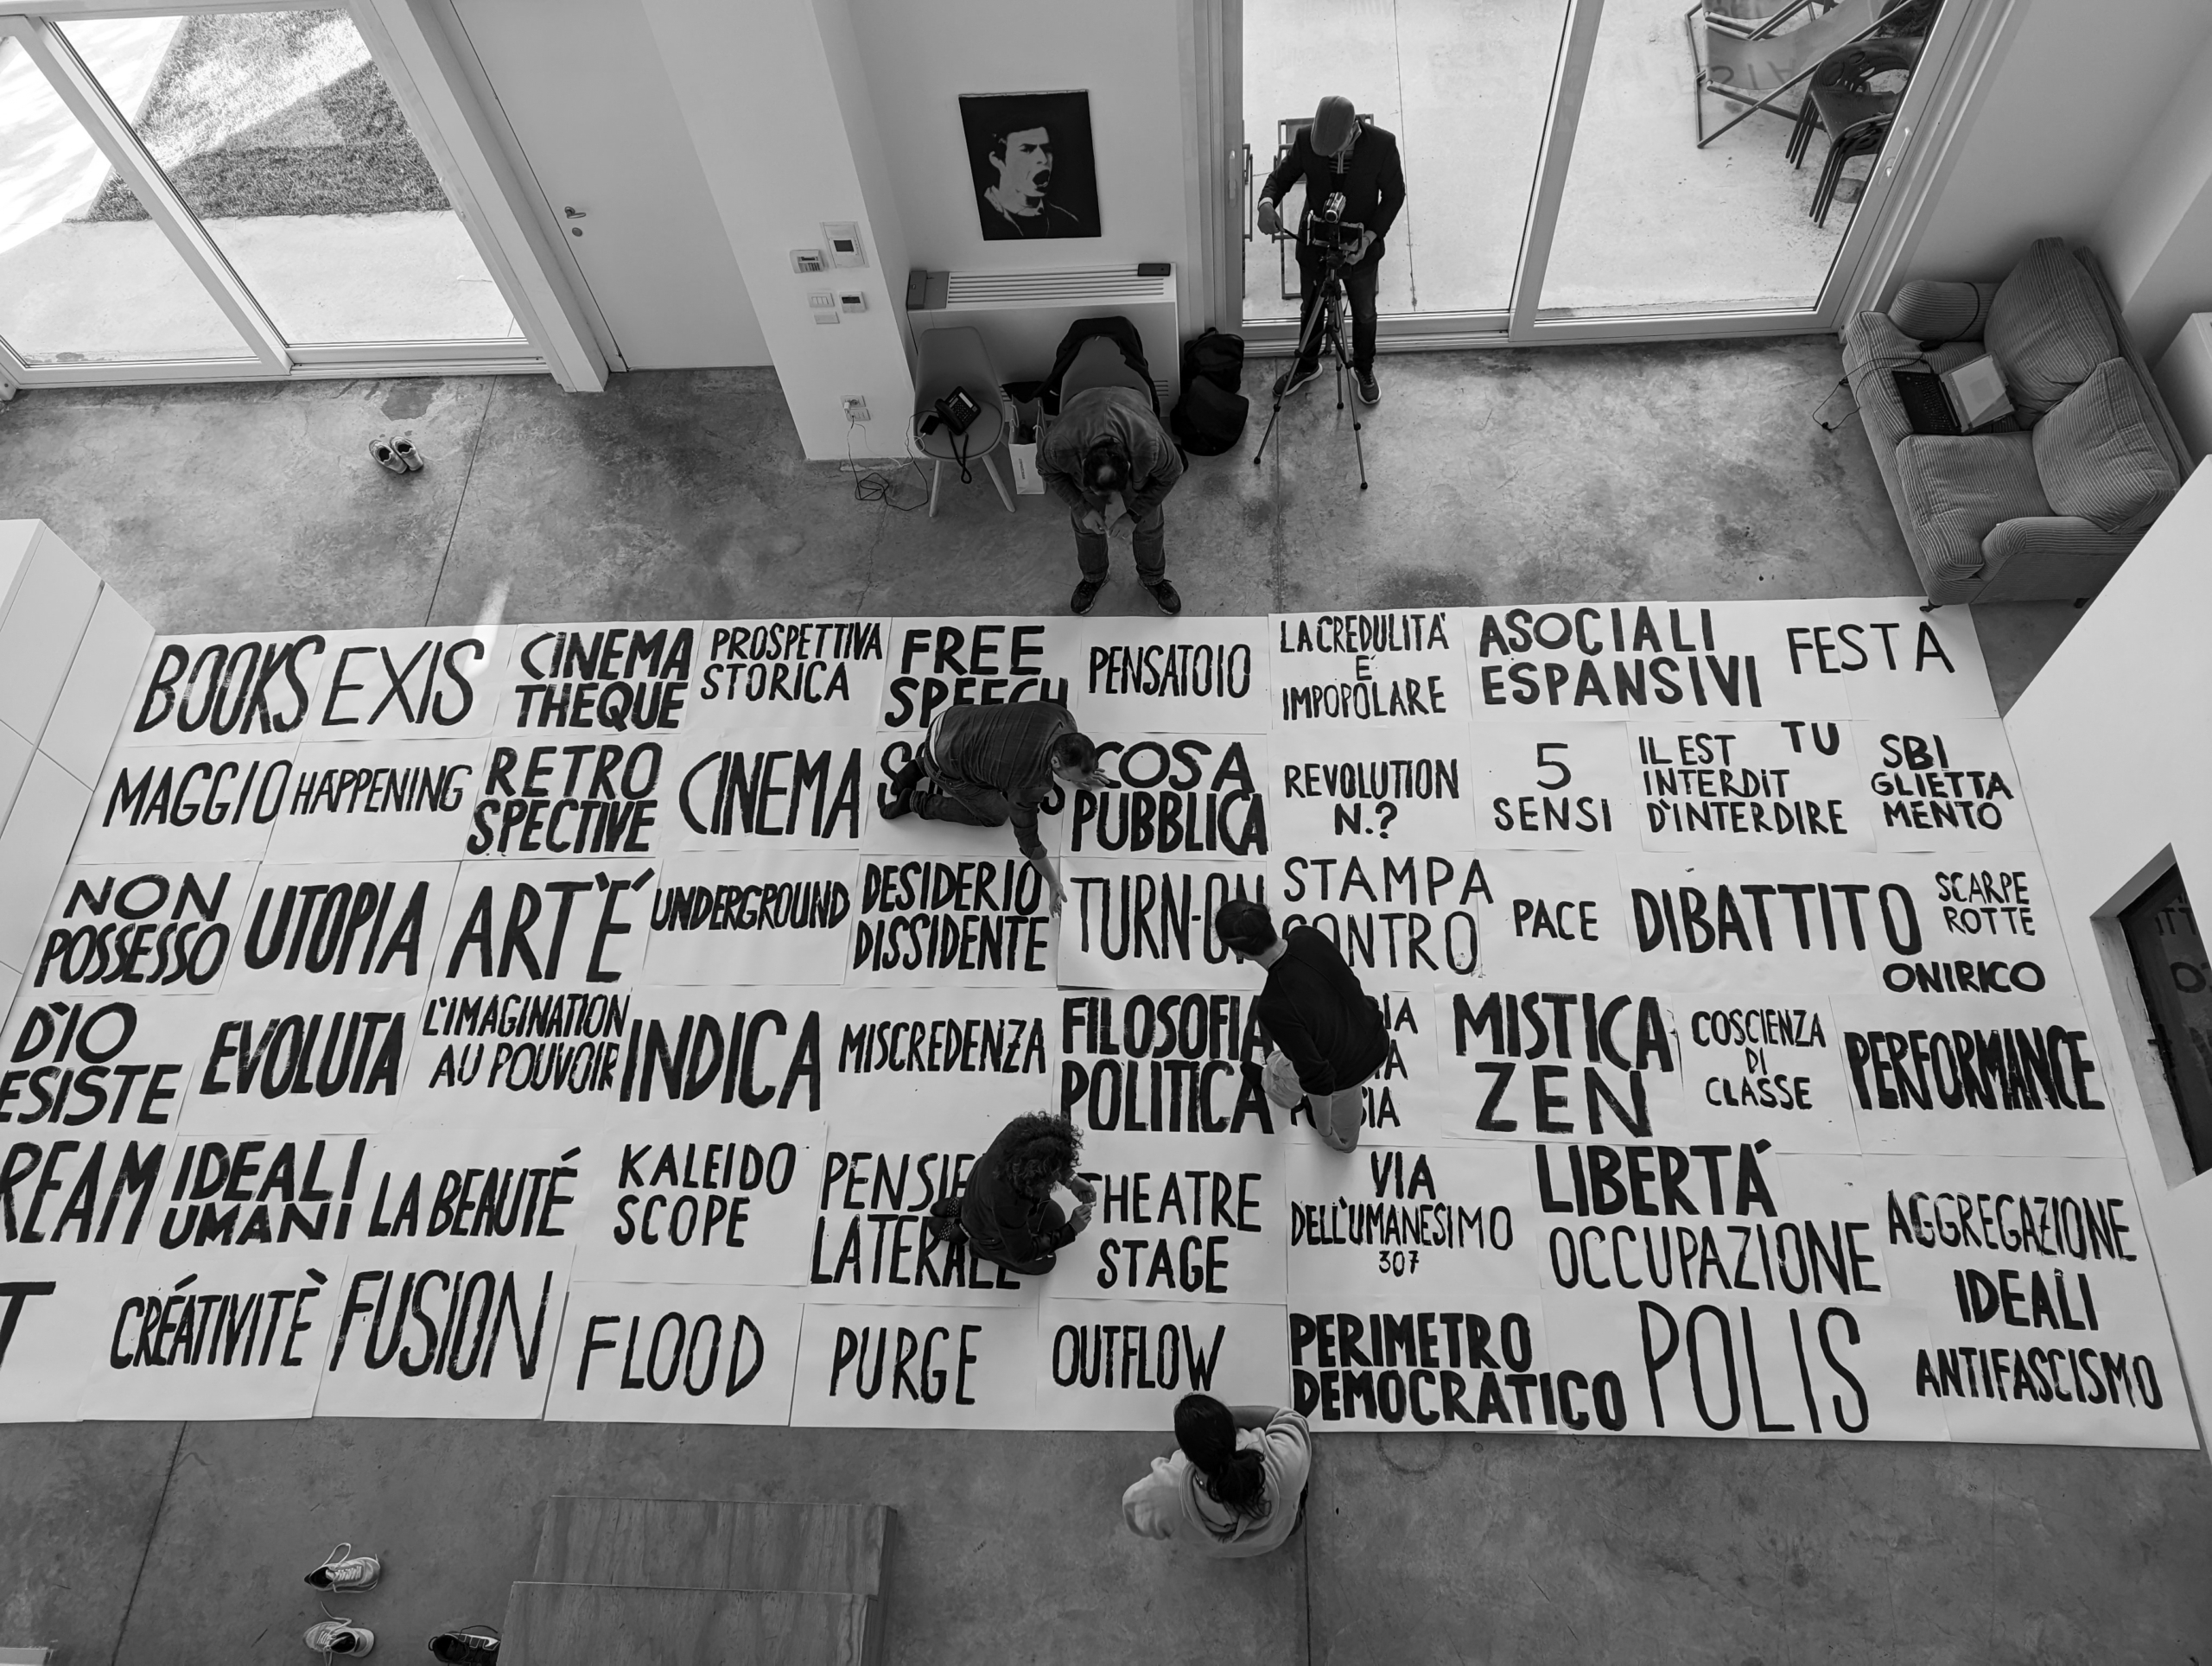 BOOKS
EXIS
CINEMA
THEQUE
PROSPETTIVA
STORICA
FREE
SPEECH
PENSATOIO
LA CREDULITÀ
É
IMPOPOLARE
ASOCIALI
ESPANSIVI
FESTA
MAGGIO
HAPPENING
RETRO
SPECTIVE
CINEMA
COSA
PUBBLICA
REVOLUTION
N.?
5
SENSI
TU
IL EST
INTERDIT
D'INTERDIRE
SBI
GLIETTA
MENTO
NON
POSSESSO
UTOPIA
ART'É
UNDERGROUND
DESIDERIO
DISSIDENTE
TURN-ON
STAMPA
CONTRO
PACE
DIBATTITO
SCARPE
ROTTE
ONIRICO
D'IO
ESISTE
EVOLUTA
L'IMAGINATION
AU POUVOIR
INDICA
MISCREDENZA
FILOSOFIA
POLITICA
MISTICA
ZEN
COSCIENZA
DI
CLASSE
PERFORMANCE
REAM
IDEALI
UMANI
LA BEAUTÉ
KALEIDO
SCOPE
PENSIE
LATERALE
THEATRE
STAGE
VIA
DELL'UMANESIMO
307
LIBERTÁ
OCCUPAZIONE
AGGREGAZIONE
T
CRÉATIVITÈ
FUSION
FLOOD
PURGE
OUTFLOW
PERIMETRO
DEMOCRATICO
POLIS
IDEALI
ANTIFASCISMO